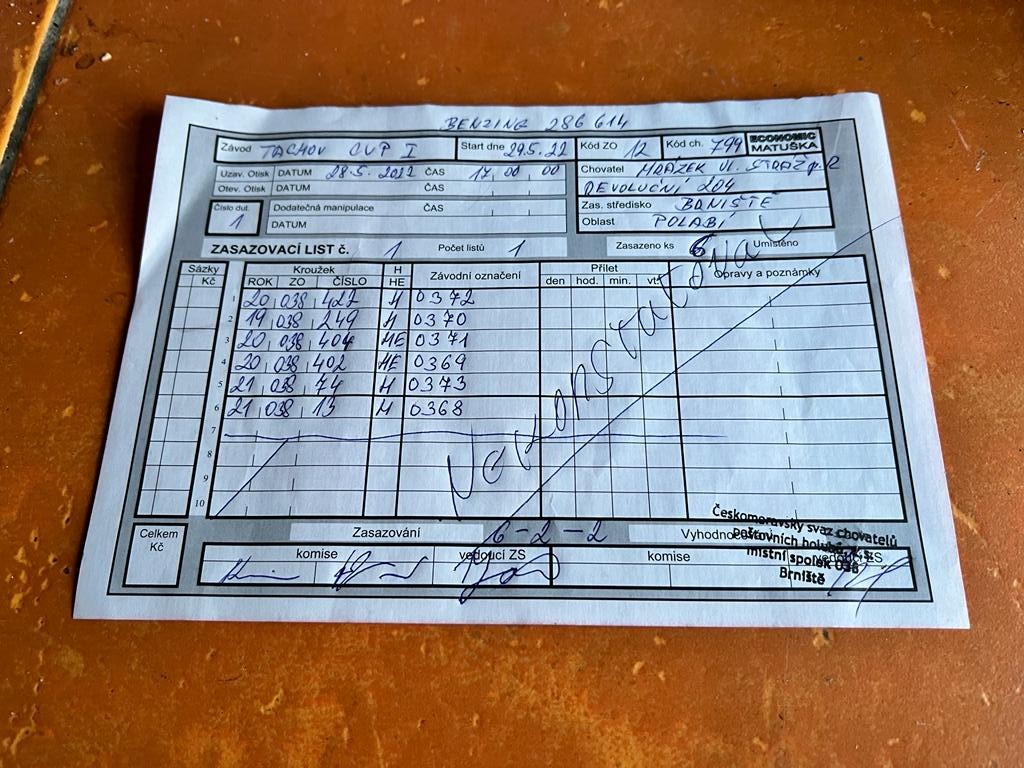 BENZING 286 614
Závod TACHOV CUP I Start dne 29.5.22 Kód ZO 12 Kód ch. 799 ECONOMIC MATUŠKA
Uzav. Otisk DATUM 28.5.2022 ČAS 17 00 00
Otev. Otisk DATUM ČAS
Chovatel MRÁZEK Vl. STRÁŽ p. R
REVOLUČNÍ 204
Číslo dut. 1
Dodatečná manipulace ČAS
DATUM
Zas. středisko BRNIŠTĚ
Oblast POLABÍ
ZASAZOVACÍ LIST č. 1 Počet listů 1 Zasazeno ks 6 Umístěno
Sázky Kč Kroužek H HE Závodní označení Přílet Opravy a poznámky
ROK ZO ČÍSLO den hod. min. vt.
1 20 038 427 H 0372
2 19 038 249 H 0370
3 20 038 404 HE 0371
4 20 038 402 HE 0369
5 21 038 74 H 0373
6 21 038 13 H 0368
7
8
9
10
Nekonstatoval
Celkem Kč
Zasazování 6-2-2 Vyhodnocování
komise vedoucí ZS komise vedoucí ZS
Českomoravský svaz chovatelů
poštovních holubů, z.s.
místní spolek 038
Brniště